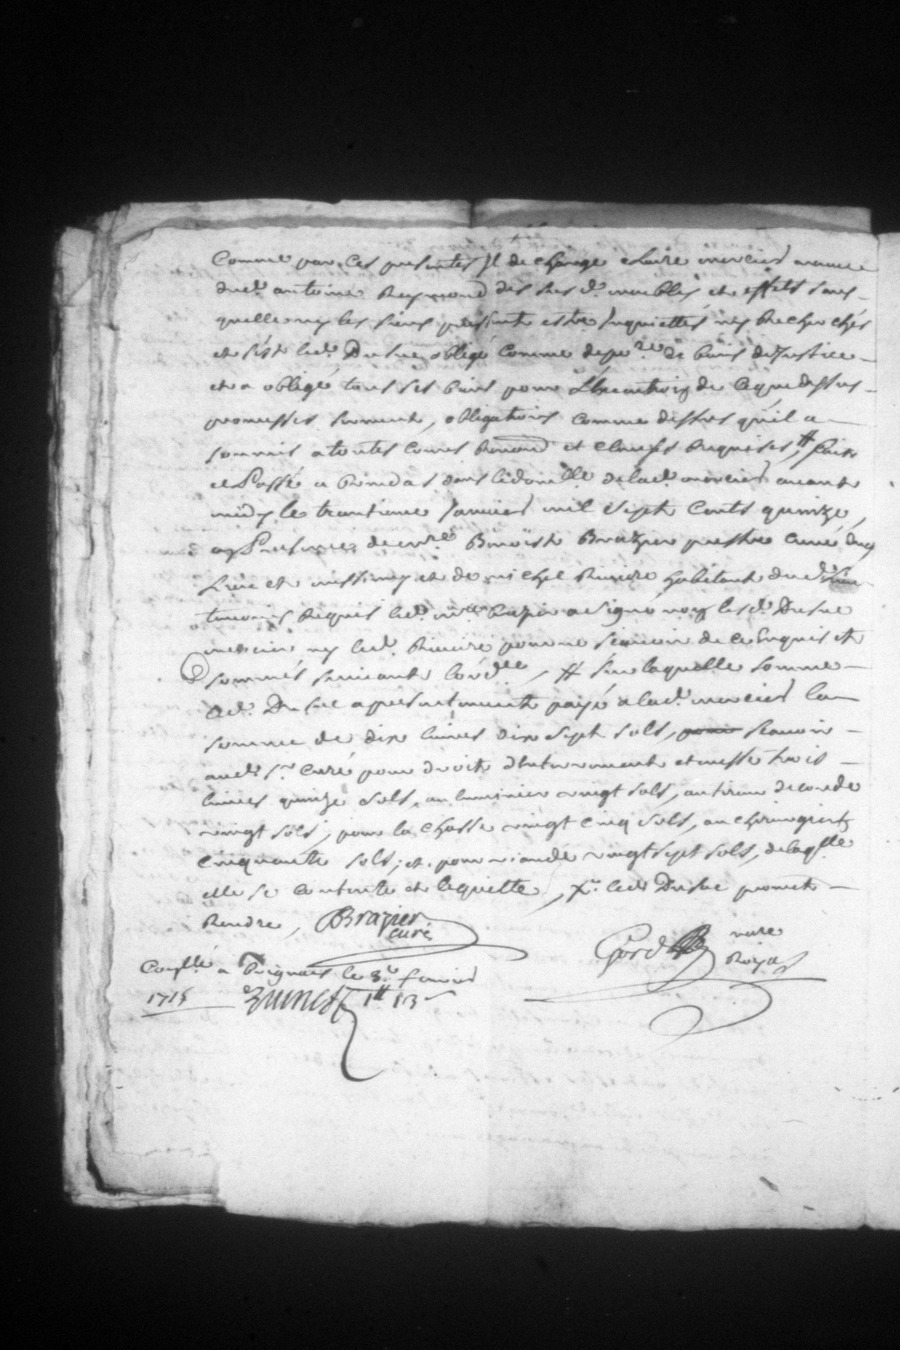 Comme par ces presentes Il decharge Claire mercier
dud. antoine Reymond des sus d. meubles et effets sans
quelle ny les siens puissent estre Inquiettés ny Recherchés
et s'est led. Dusuc obligé comme depo.re de biens de Justice
et a obligé tous ses biens pour L'execution de ce que dessus
promesses serment, obligations comme dessus qu'il a
soumis a toutes Cours Renond et clauses Requises, # fait
et Passé a dans le domicille de lad. mercier avant
midy le trantieme Janvier mil Sept Cents quinze,
en Presence de mre Benoist Brazier prestre curé dud
Lieu et et de michel Riviere habitant dud. lieu
tesmoins Requis led. mre Brazier a signé non lesd. Dusuc
mercier ny led. Riviere pour ne scavoir de ce Enquis et
sommés suivant l'ord.ce, # sur laquelle somme
led. Dusuc a presentement payé a lad. mercier la
somme de dix livres dix sept sols, scavoir
aud. sr. curé pour droit d'Enterrement et messe trois
livres quinze sols, au luminier vingt sols,
vingt sols, pour la Chasse vingt cinq sols, au chirurgien
cinquante sols, et pour viande vingt sept sols, de laqlle
elle se contente et le quitte, led. Dusuc promet
Rendre,
Brazier
curé
nore
Royal
Conllé a le 8.e fevrier
1715